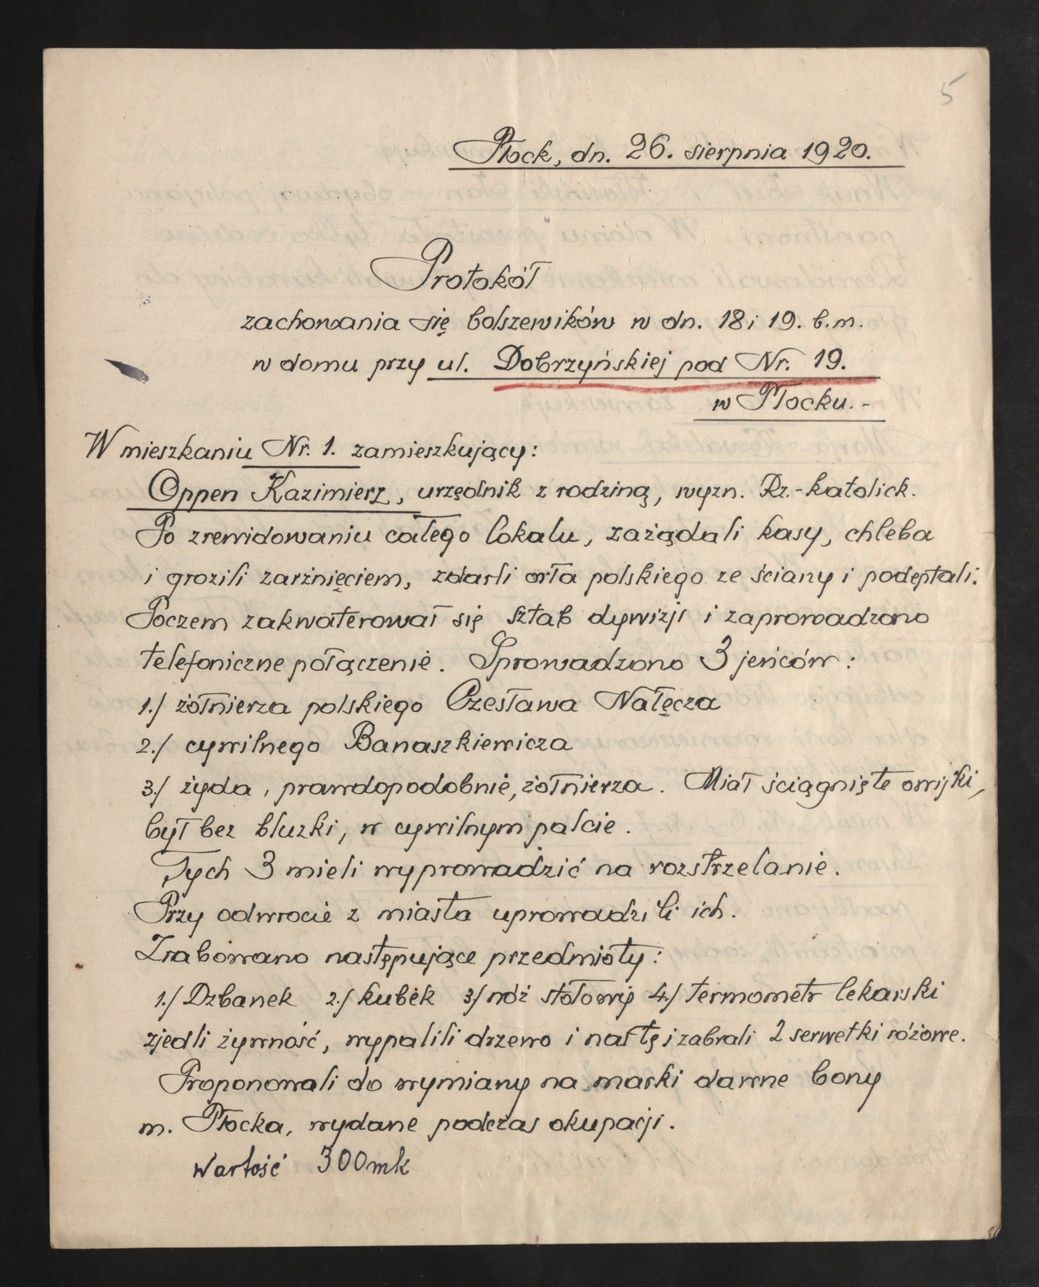 5
Płock, dn. 26. sierpnia 1920.
Protokół
zachowania się bolszewików w dn. 18 i 19. b.m.
w domu przy ul. Dobrzyńskiej pod Nr. 19.
w Płocku.-
W mieszkaniu Nr. 1. zamieszkujący:
Oppen Kazimierz, urzędnik z rodziną, wyzn. Rz.-katolick.
Po zrewidowaniu całego lokalu, zażądali kasy, chleba
i grozili zarżnięciem, zdarli orła polskiego ze ściany i podeptali.
Poczem zakwaterował się sztab dywizji i zaprowadzono
telefoniczne połączenie. Sprowadzono 3 jeńców:
1./ żołnierza polskiego Czesława Nałęcza
2./ cywilnego Banaszkiewicza
3./ żyda, prawdopodobnie, żołnierza. Miał ściągnięte owijki,
był bez bluzki, w cywilnym palcie.
Tych 3 mieli wyprowadzić na rozstrzelanie.
Przy odwrocie z miasta uprowadzili ich.
Zrabowano następujące przedmioty:
1./ Dzbanek 2./ kubek 3/ nóż stołowy 4./ termometr lekarski
zjedli żywność, wypalili drzewo i naftę i zabrali 2 serwetki różowe.
Proponowali do wymiany na marki dawne bony
m. Płocka, wydane podczas okupacji.
Wartość 300 mk